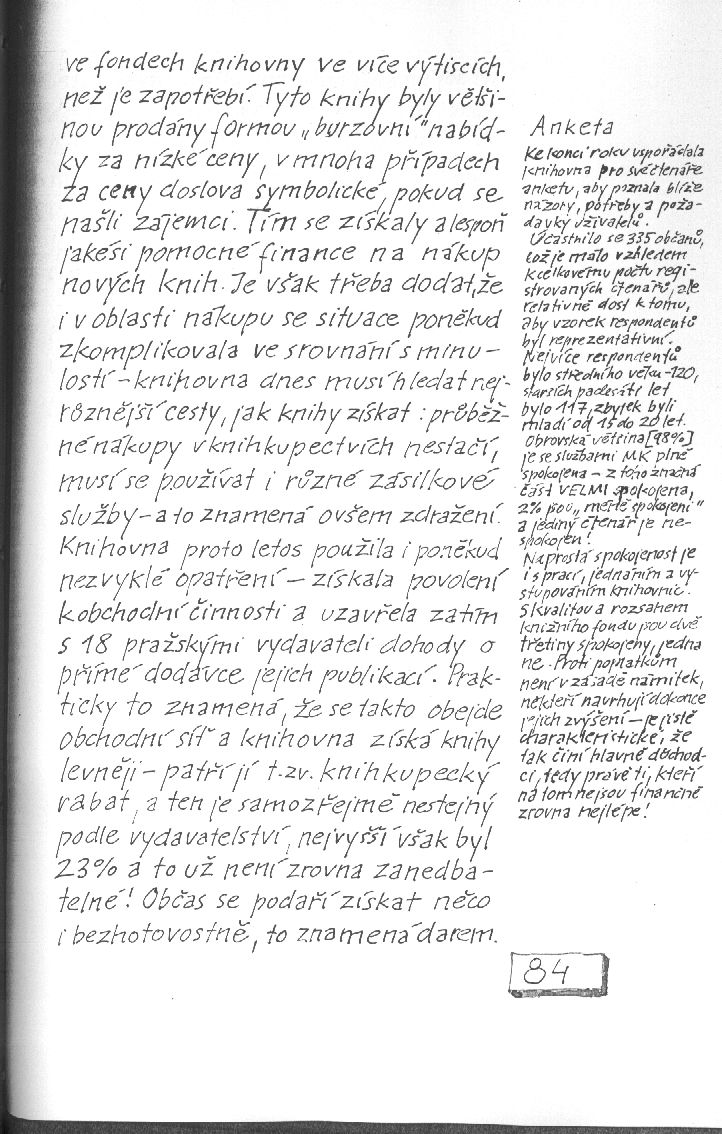 ve fondech knihovny ve více výtiscích,
než je zapotřebí. Tyto knihy byly větši-
nou prodány formou „burzovní" nabíd-
ky za nízké ceny, v mnoha případech
za ceny doslova symbolické, pokud se
našli zájemci. Tím se získaly alespoň
jakési pomocné finance na nákup
nových knih. Je však třeba dodat, že
i v oblasti nákupu se situace poněkud
zkomplikovala ve srovnání s minu-
lostí – knihovna dnes musí hledat nej-
různější cesty, jak knihy získat: průběž-
né nákupy v knihkupectvích nestačí,
musí se používat i různé zásilkové
služby – a to znamená ovšem zdražení.
Knihovna proto letos použila i poněkud
nezvyklé opatření – získala povolení
k obchodní činnosti a uzavřela zatím
s 18 pražskými vydavateli dohody o
přímé dodávce jejich publikací. Prak-
ticky to znamená, že se takto obejde
obchodní síť a knihovna získá knihy
levněji – patří jí t.zv. knihkupecký
rabat, a ten je samozřejmě nestejný
podle vydavatelství, nejvyšší však byl
23% a to už není zrovna zanedba-
telné! Občas se podaří získat něco
i bezhotovostně, to znamená darem.
Anketa
Ke konci roku uspořádala
knihovna pro své čtenáře
anketu, aby poznala blíže
názory, potřeby a poža-
davky uživatelů.
Účastnilo se 335 občanů,
což je málo vzhledem
k celkovému počtu regi-
strovaných čtenářů, ale
relativně dost k tomu,
aby vzorek respondentů
byl reprezentativní.
Nejvíce respondentů
bylo středního věku – 120,
starších padesáti let
bylo 117, zbytek byli
mladí od 15 do 20 let.
Obrovská většina [98%]
je se službami MK plně
spokojena – z toho značná
část VELMI spokojena,
2% jsou „méně spokojeni"
a jediný čtenář je ne-
spokojen!
Naprostá spokojenost je
i s prací, jednáním a vy-
stupováním knihovnic.
S kvalitou a rozsahem
knižního fondu jsou dvě
třetiny spokojeny, jedna
ne. Proti poplatkům
není v zásadě námitek,
někteří navrhují dokonce
jejich zvýšení – je jistě
charakteristické, že
tak činí hlavně důchod-
ci, tedy právě ti, kteří
na tom nejsou finančně
zrovna nejlépe!
84